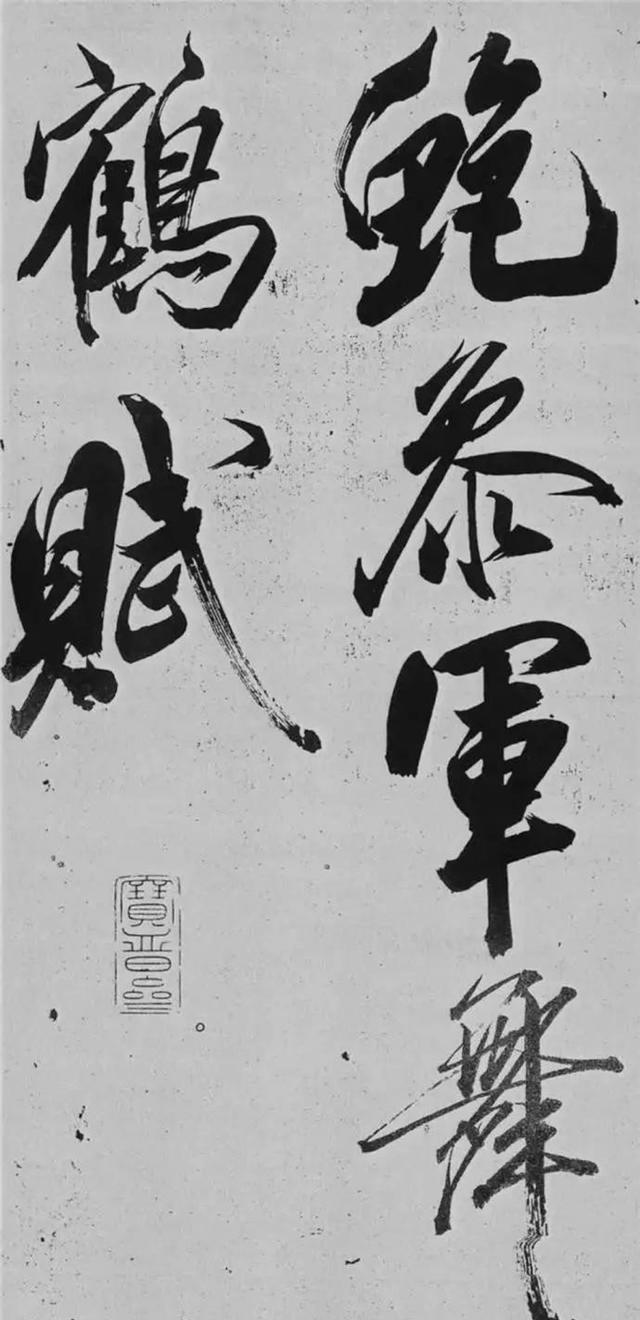 鮑叅軍舞
鶴賦
寶晉齋